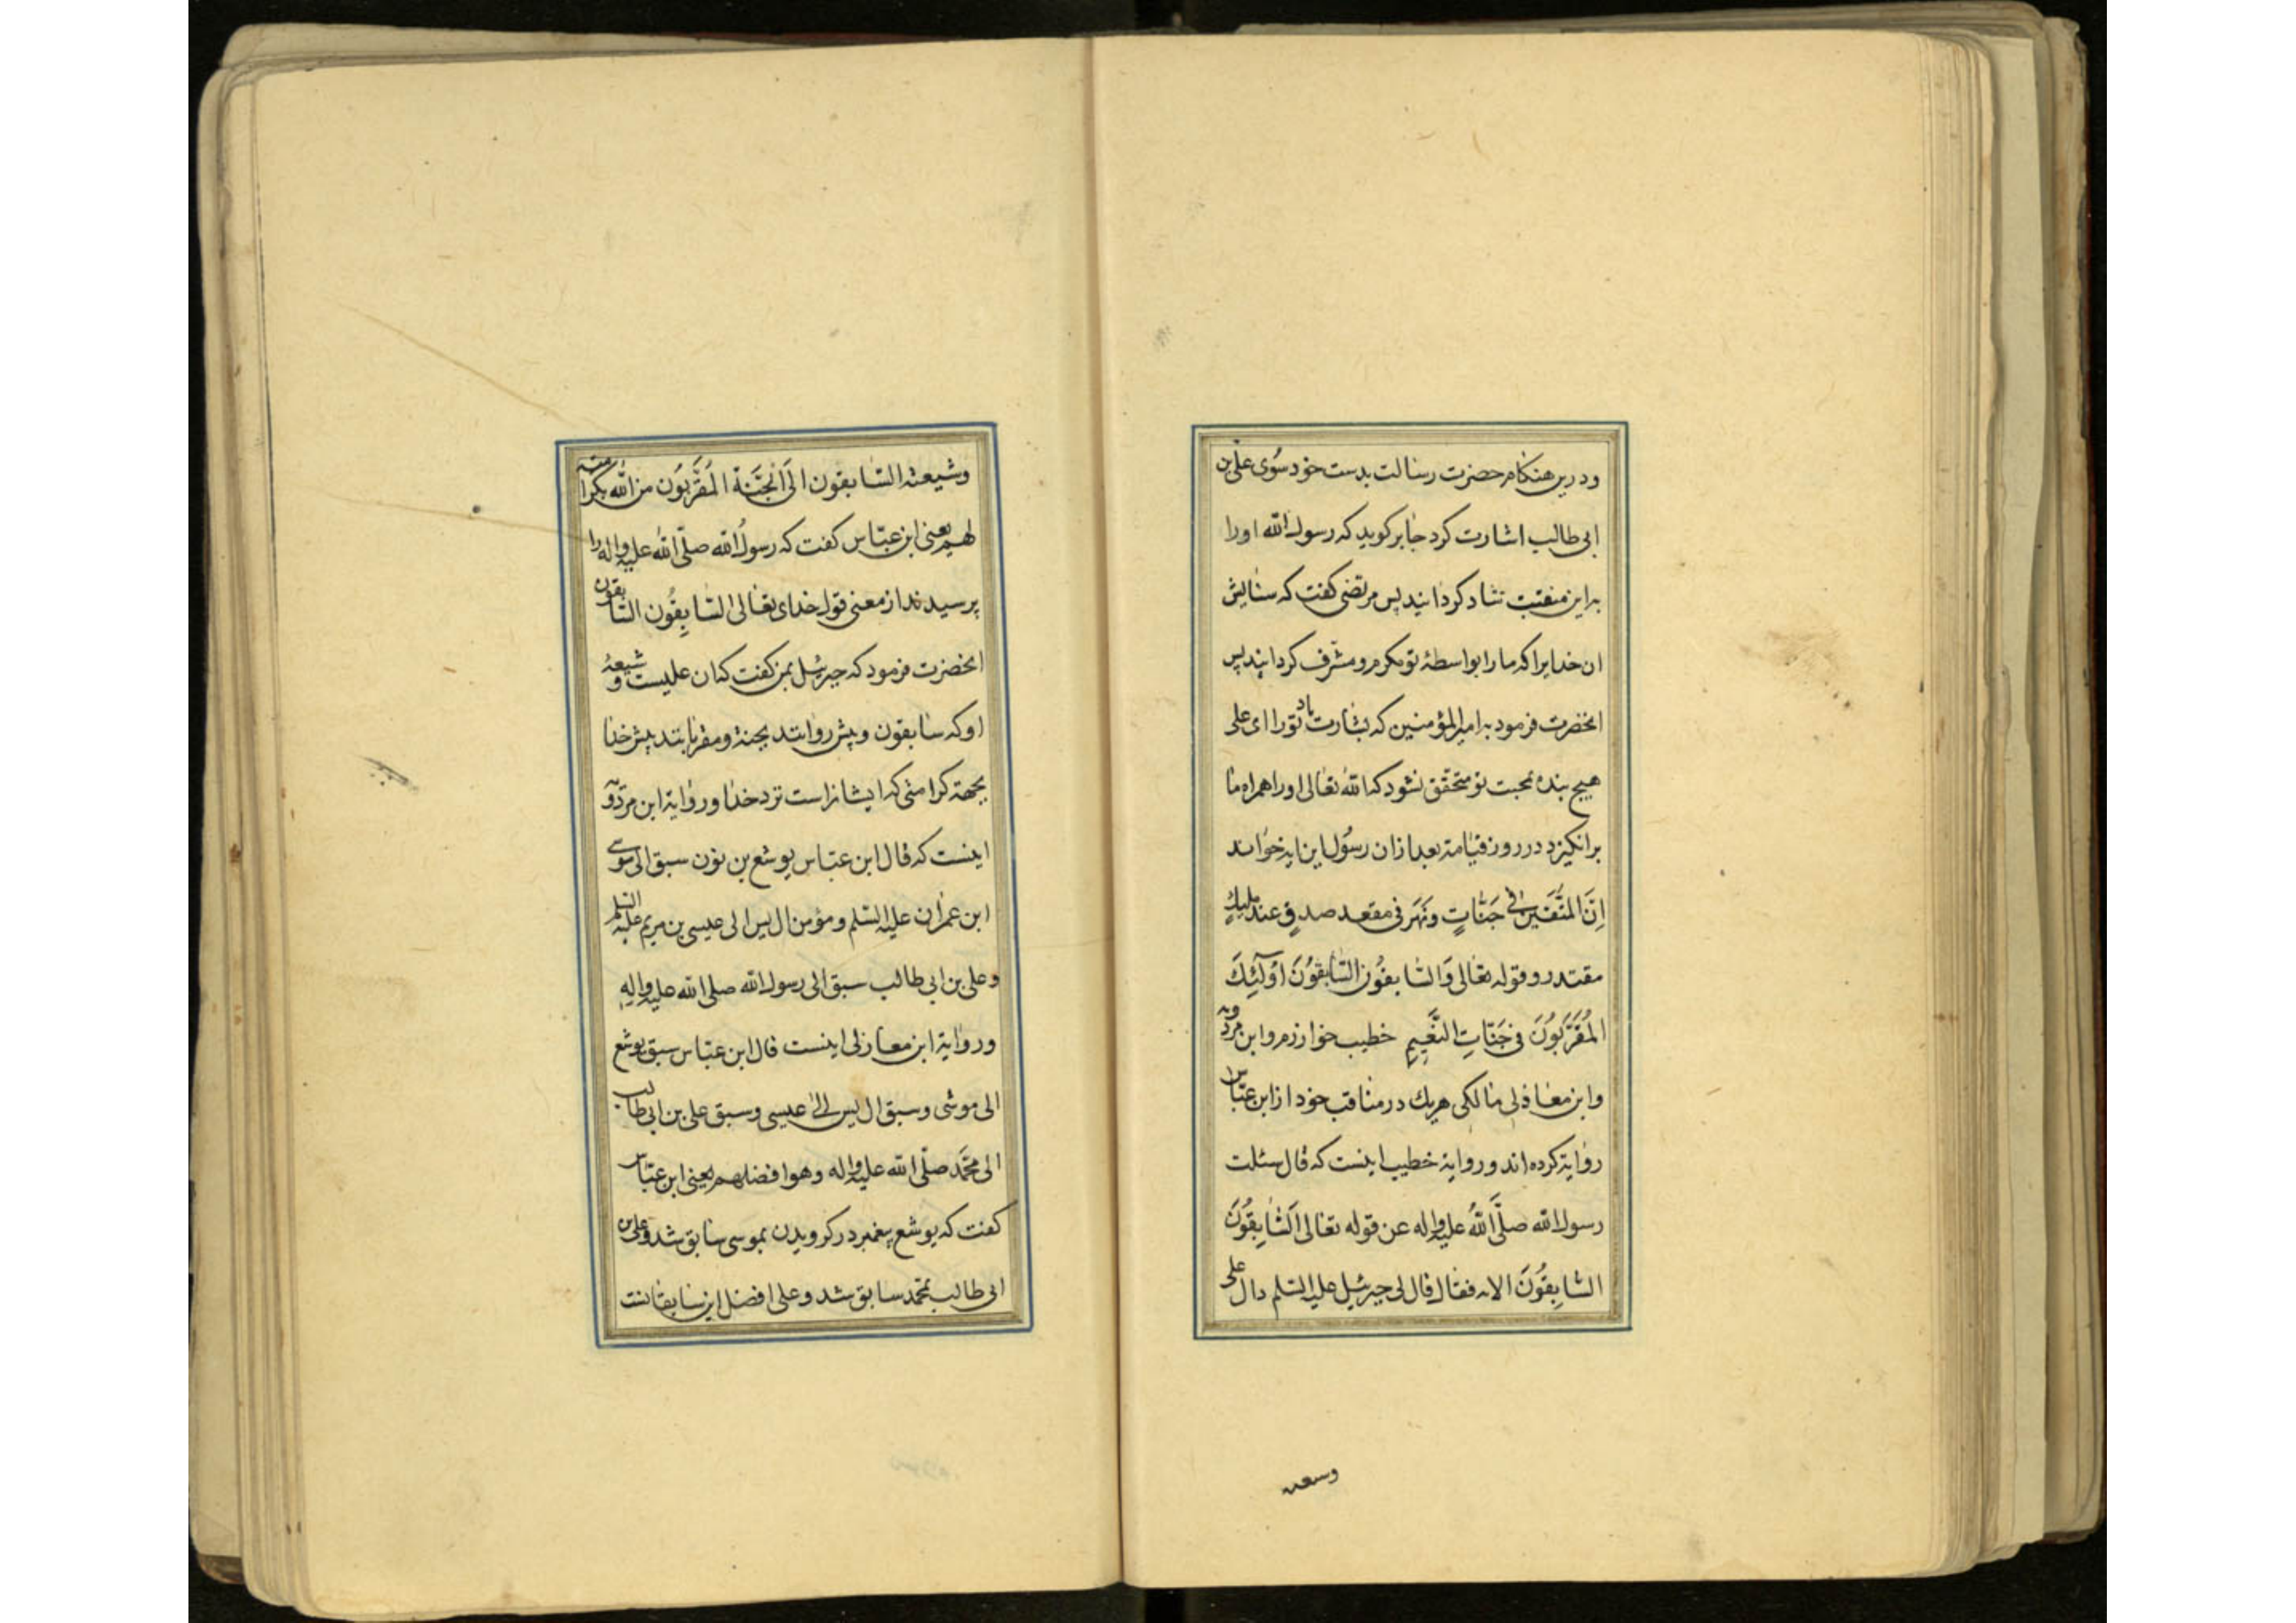 ودرین هنکام حضرت رسالت بدست خود سوی علی بن
ابی طالب اشارت کرد جابر کوید که رسول الله اورا
به این منقبت شاد کردانید پس مرتضی کفت که ستایش
ان خدایرا که مارا بواسطهٔ تو مکرم و مشرف کردانید پس
انحضرت فرمود به امیرالمؤمنین که بشارت باد تورا ای علی
هیچ بنده بمحبت تو متحقق نشود که الله تعالی اورا همراه ما
برانکیزد در روز قیامة بعد ازان رسول این ایه خواند
اِنَّ المتَّقین فی جَنّاتٍ ونَهَر فی مقعد صدقٍ عند ملیكٍ
مقتدر وقوله تعالی وَالسّابقُون السّابقُونَ اُولٰٓئِكَ
المُقَرَّبُونَ فی جَنّاتِ النَّعِیمِ خطیب خوارزم وابن مردویه
وابن مغاذلی مالکی هریك در مناقب خود از ابن عبّاس
روایة کرده اند وروایة خطیب اینست که قال سئلت
رسول الله صلَّی اللهُ علیه واله عن قوله تعالی السّابِقُونَ
السّابِقُونَ الایه فقال قال لی جبرئیل علیه السّلم ذاك علی
وسیعته
وشیعته السّابقون الَی الجَنَّة المُقَرَّبُون من الله بکرامته
لهم یعنی ابن عبّاس کفت که رسول الله صلّی الله علیه واله را
پرسیدند از معنی قول خدای تعالی السّابِقُون السّابقون
انحضرت فرمود که جبرئیل بمن کفت که ان علیست و شیعهٔ
او که سابقون و پیش روانند بجنة ومقربانند پیش خدا
بجهة کرامتی که ایشانراست نزد خدا وروایة ابن مردویه
اینست که قال ابن عبّاس یوشع بن نون سبق الی موسی
ابن عمران علیه السّلم ومؤمن ال یس الی عیسی بن مریم علیه السّلم
وعلی بن ابی طالب سبق الی رسول الله صلی الله علیه واله
وروایة ابن معازلی اینست قال ابن عبّاس سبق یوشع
الی موسی وسبق ال یس الی عیسی وسبق علی بن ابی طالب
الی محمَّد صلّی الله علیه واله وهو افضلهم یعنی ابن عبّاس
کفت که یوشع پیغمبر در کرویدن بموسی سابق شد وعلی بن
ابی طالب بمحمّد سابق شد وعلی افضل این سابقانست